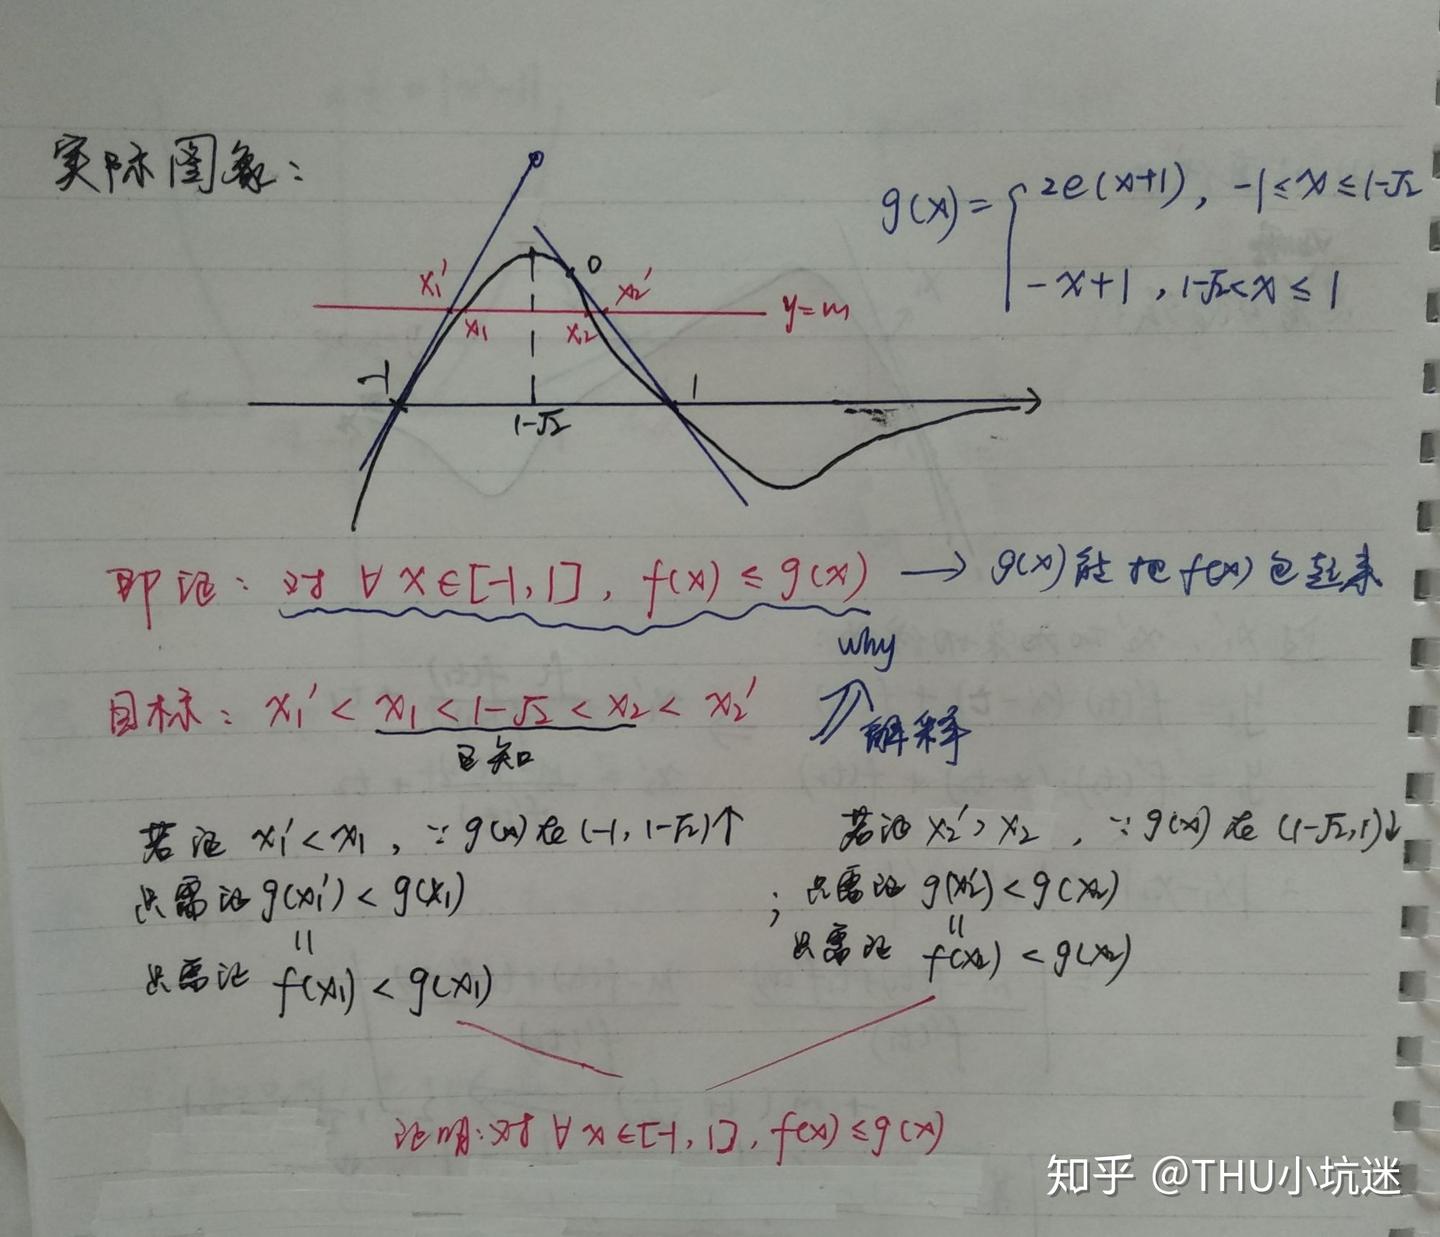 实际图象:
g(x)= { 2e(x+1), -1≤x≤1-√2
-x+1, 1-√2<x≤1
0
x₁' x₂'
y=m
x₁ x₂
-1 1
1-√2
即证: 对 ∀ x∈[-1,1], f(x)≤g(x) → g(x)能把f(x)包起来
why
目标: x₁' < x₁ < 1-√2 < x₂ < x₂'
已知
解释
若证 x₁'<x₁, ∵ g(x)在(-1, 1-√2)↑
只需证 g(x₁') < g(x₁)
=
只需证 f(x₁) < g(x₁)
若证 x₂'>x₂, ∵ g(x)在(1-√2,1)↓
; 只需证 g(x₂') < g(x₂)
=
只需证 f(x₂) < g(x₂)
证明:对 ∀ x∈[-1,1], f(x)≤g(x)
知乎 @THU小坑迷